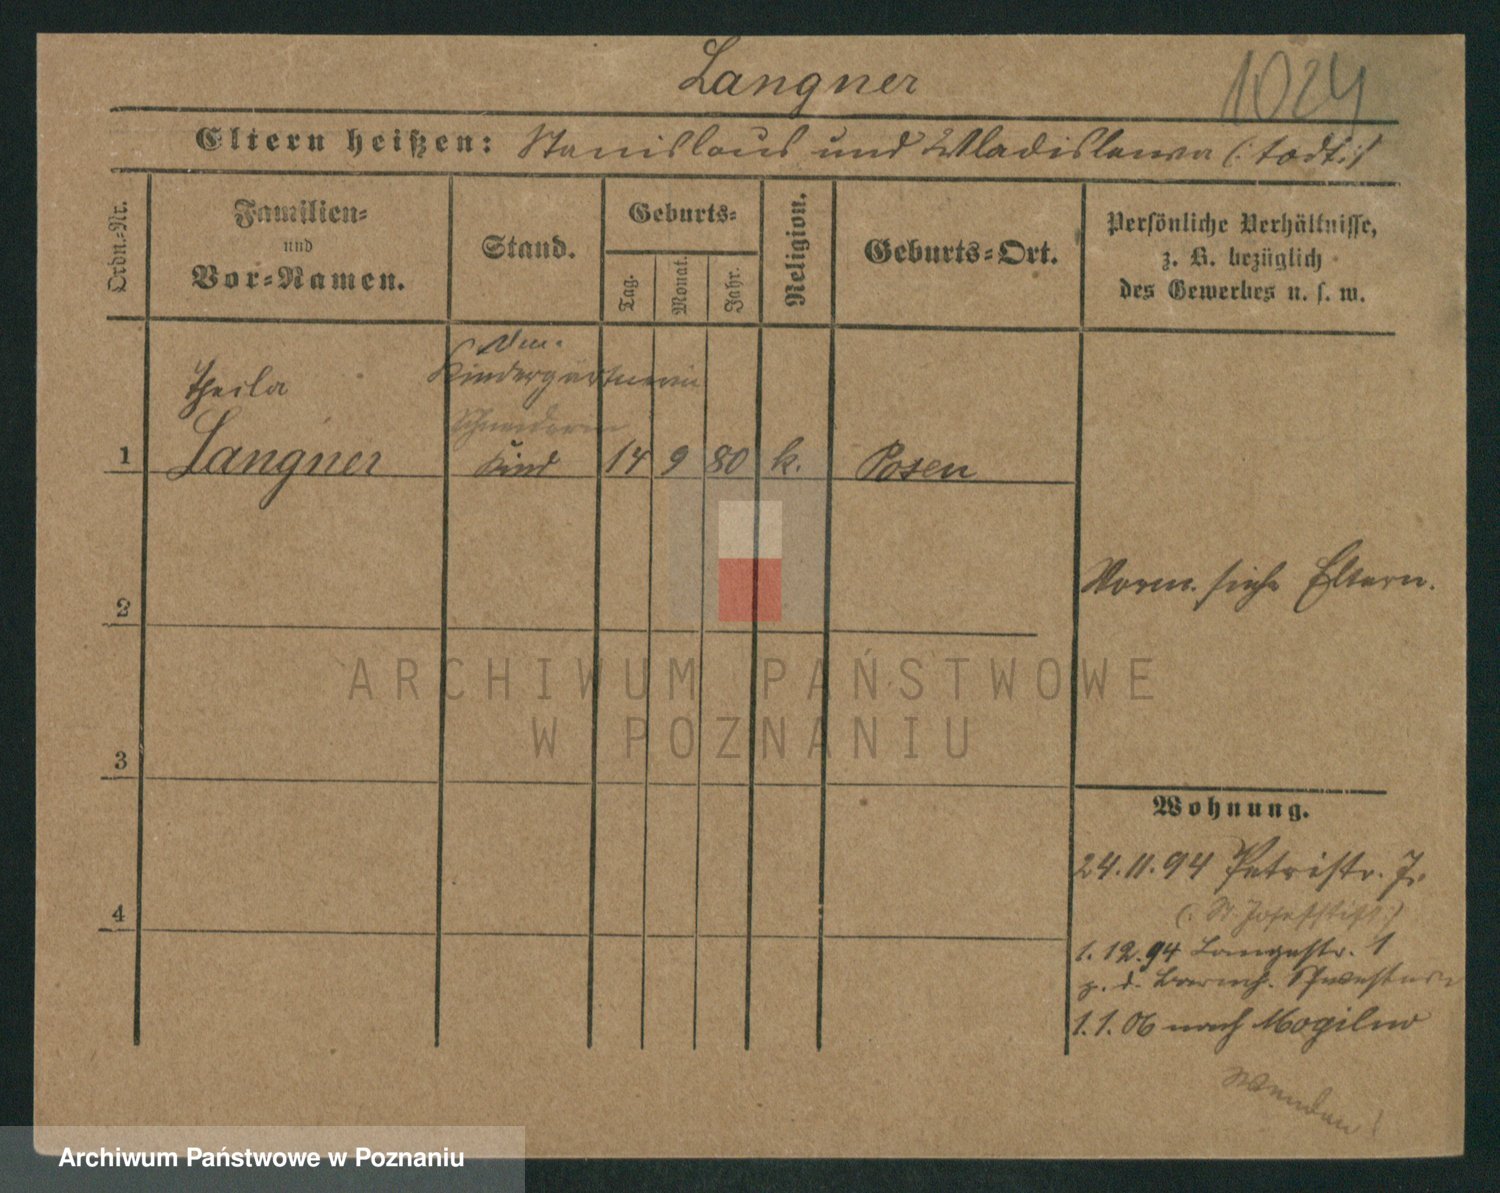 Langner
1024
Eltern heißen: Stanislaus und Wladislawa (: todt :)
Ordn.-Nr.
Familien-
und
Vor-Namen.
Stand.
Geburts-
Tag.
Monat.
Jahr.
Religion.
Geburts-Ort.
Persönliche Verhältnisse,
z. B. bezüglich
des Gewerbes u. s. w.
Kindergärtnerin
Thekla
Schneiderin
1 Langner Kind 14 9 80 k. Posen
Vorm. siehe Eltern.
2
3
4
Wohnung.
24.11.94 Petristr. 7.
(: St. Josefstift :)
1.12.94 Langestr. 1
z. d. Barmh. Schwestern
1.1.06 nach Mogilno
Wenden!
ARCHIWUM PAŃSTWOWE
W POZNANIU
Archiwum Państwowe w Poznaniu